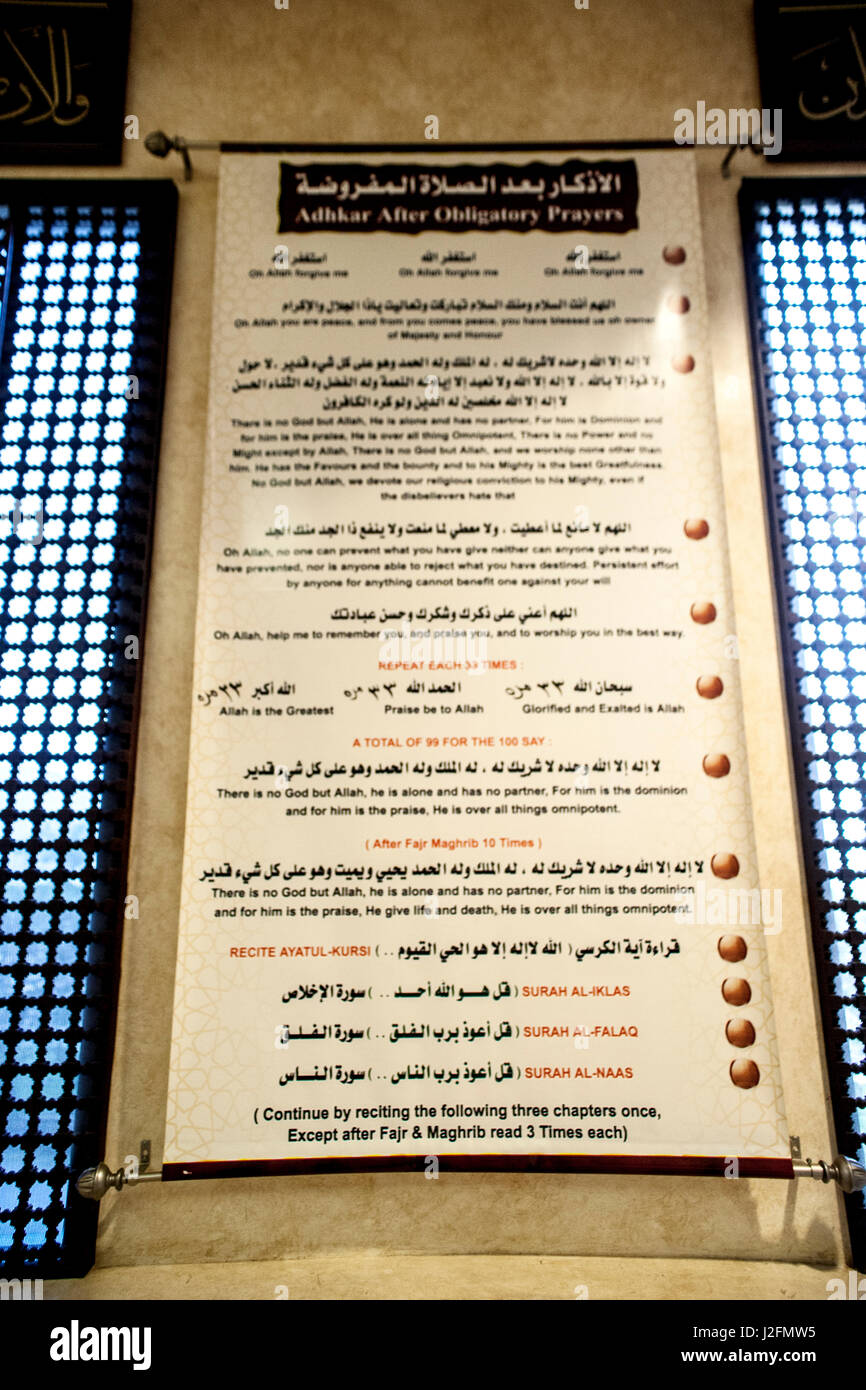 الأذكار بعد الصلاة المفروضة
Adhkar After Obligatory Prayers
استغفر الله استغفر الله استغفر الله
Oh Allah forgive me Oh Allah forgive me Oh Allah forgive me
اللهم أنت السلام ومنك السلام تباركت وتعاليت ياذا الجلال والإكرام
Oh Allah you are peace, and from you comes peace, you have blessed us oh owner
of Majesty and Honour
لا إله إلا الله وحده لاشريك له ، له الملك وله الحمد وهو على كل شيء قدير ، لا حول
ولا قوة إلا بالله ، لا إله إلا الله ولا نعبد إلا إياه له النعمة وله الفضل وله الثناء الحسن
لا إله إلا الله مخلصين له الدين ولو كره الكافرون
There is no God but Allah, He is alone and has no partner, For him is Dominion and
for him is the praise, He is over all thing Omnipotent, There is no Power and no
Might except by Allah, There is no God but Allah, and we worship none other than
him. He has the Favours and the bounty and to his Mighty is the best Greatfulness.
No God but Allah, we devote our religious conviction to his Mighty, even if
the disbelievers hate that
اللهم لا مانع لما أعطيت ، ولا معطي لما منعت ولا ينفع ذا الجد منك الجد
Oh Allah, no one can prevent what you have give neither can anyone give what you
have prevented, nor is anyone able to reject what you have destined. Persistent effort
by anyone for anything cannot benefit one against your will
اللهم أعني على ذكرك وشكرك وحسن عبادتك
Oh Allah, help me to remember you, and praise you, and to worship you in the best way.
REPEAT EACH 33 TIMES :
سبحان الله ٣٣ مره الحمد الله ٣٣ مره الله أكبر ٣٣ مره
Allah is the Greatest Praise be to Allah Glorified and Exalted is Allah
A TOTAL OF 99 FOR THE 100 SAY :
لا إله إلا الله وحده لا شريك له ، له الملك وله الحمد وهو على كل شيء قدير
There is no God but Allah, he is alone and has no partner, For him is the dominion
and for him is the praise, He is over all things omnipotent.
( After Fajr Maghrib 10 Times )
لا إله إلا الله وحده لا شريك له ، له الملك وله الحمد يحيي ويميت وهو على كل شيء قدير
There is no God but Allah, he is alone and has no partner, For him is the dominion
and for him is the praise, He give life and death, He is over all things omnipotent.
RECITE AYATUL-KURSI قراءة آية الكرسي ( الله لاإله إلا هو الحي القيوم .. )
SURAH AL-IKLAS ( قل هو الله أحد .. ) سورة الإخلاص
SURAH AL-FALAQ ( قل أعوذ برب الفلق .. ) سورة الفلق
SURAH AL-NAAS ( قل أعوذ برب الناس .. ) سورة الناس
( Continue by reciting the following three chapters once,
Except after Fajr & Maghrib read 3 Times each)
alamy stock photo
J2FMW5
www.alamy.com